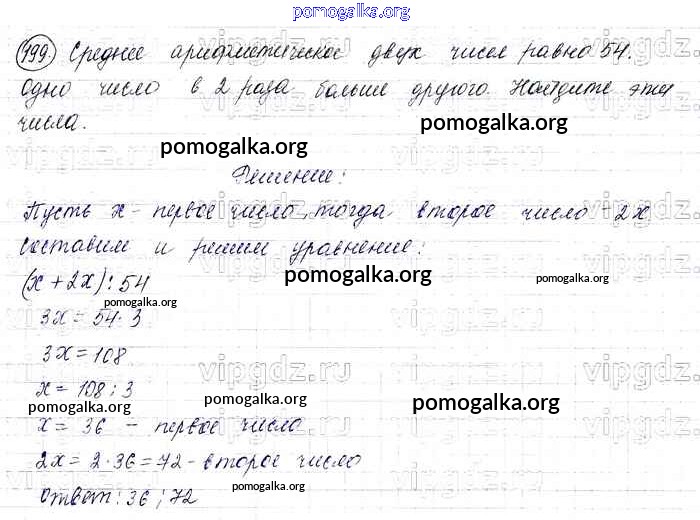 pomogalka.org
199. Среднее арифметическое двух чисел равно 54.
Одно число в 2 раза больше другого. Найдите эти
числа.
pomogalka.org
pomogalka.org
Решение:
Пусть x - первое число, тогда второе число 2x
составим и решим уравнение:
(x + 2x) : 54
pomogalka.org
pomogalka.org
pomogalka.org
3x = 54 · 3
3x = 108
x = 108 : 3
pomogalka.org
pomogalka.org
x = 36 - первое число
2x = 2 · 36 = 72 - второе число
Ответ: 36 ; 72
pomogalka.org
vipgdz.ru